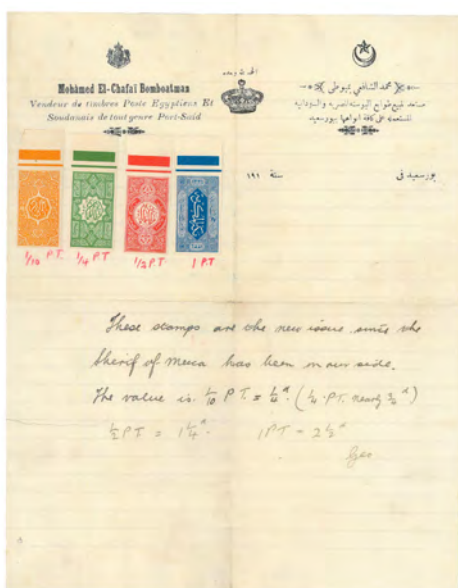 الحمد لله وحده
Mohamed El-Chafaï Bomboatman
Vendeur de timbres Poste Egyptiens Et
Soudanais de tout genre Port-Saïd
محمد الشافعي بمبوطي
متعهد بيع طوابع البوسته المصريه والسودانيه
المستعمله على كافة انواعها ببورسعيد
بورسعيد في سنة ١٩١
1/10 P.T. 1/4 P.T. 1/2 P.T. 1 P.T
These stamps are the new issue since the
Sherif of Mecca has been on our side.
The value is. 1/10 P T. = 1/4 d. (1/4 . P.T. nearly 3/4 d)
1/2 P T = 1 1/4 d. 1 P T - 2 1/2 d
Geo